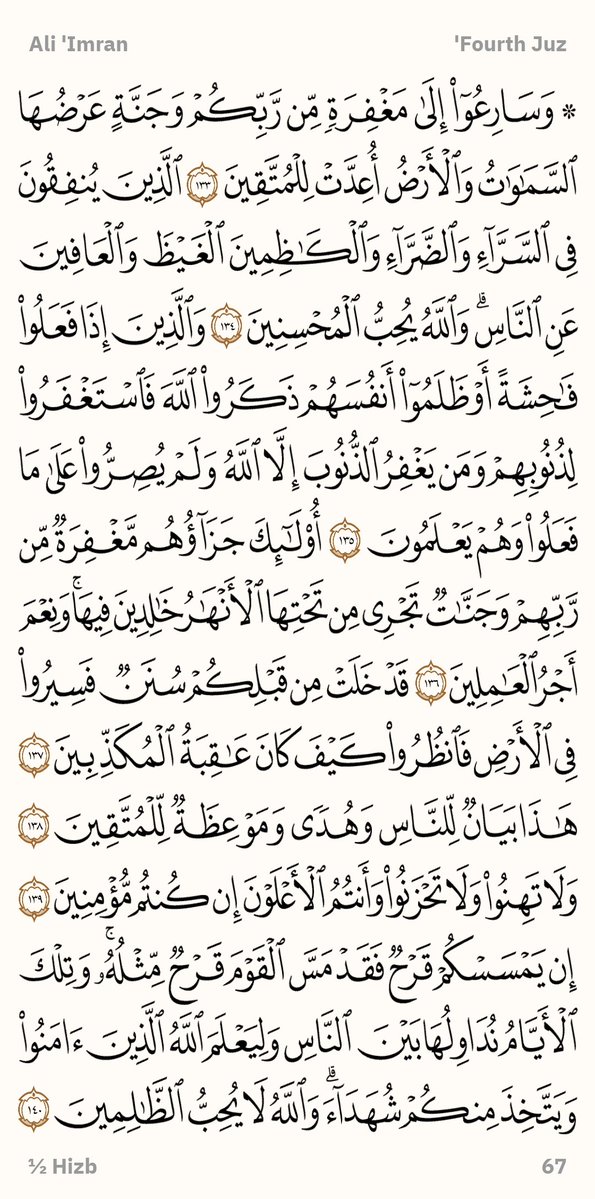 Ali 'Imran
'Fourth Juz
۞ وَسَارِعُوٓا۟ إِلَىٰ مَغْفِرَةٍ مِّن رَّبِّكُمْ وَجَنَّةٍ عَرْضُهَا
ٱلسَّمَـٰوَٰتُ وَٱلْأَرْضُ أُعِدَّتْ لِلْمُتَّقِينَ ١٣٣ ٱلَّذِينَ يُنفِقُونَ
فِى ٱلسَّرَّآءِ وَٱلضَّرَّآءِ وَٱلْكَـٰظِمِينَ ٱلْغَيْظَ وَٱلْعَافِينَ
عَنِ ٱلنَّاسِ ۗ وَٱللَّهُ يُحِبُّ ٱلْمُحْسِنِينَ ١٣٤ وَٱلَّذِينَ إِذَا فَعَلُوا۟
فَـٰحِشَةً أَوْ ظَلَمُوٓا۟ أَنفُسَهُمْ ذَكَرُوا۟ ٱللَّهَ فَٱسْتَغْفَرُوا۟
لِذُنُوبِهِمْ وَمَن يَغْفِرُ ٱلذُّنُوبَ إِلَّا ٱللَّهُ وَلَمْ يُصِرُّوا۟ عَلَىٰ مَا
فَعَلُوا۟ وَهُمْ يَعْلَمُونَ ١٣٥ أُو۟لَـٰٓئِكَ جَزَآؤُهُم مَّغْفِرَةٌ مِّن
رَّبِّهِمْ وَجَنَّـٰتٌ تَجْرِى مِن تَحْتِهَا ٱلْأَنْهَـٰرُ خَـٰلِدِينَ فِيهَا ۚ وَنِعْمَ
أَجْرُ ٱلْعَـٰمِلِينَ ١٣٦ قَدْ خَلَتْ مِن قَبْلِكُمْ سُنَنٌ فَسِيرُوا۟
فِى ٱلْأَرْضِ فَٱنظُرُوا۟ كَيْفَ كَانَ عَـٰقِبَةُ ٱلْمُكَذِّبِينَ ١٣٧
هَـٰذَا بَيَانٌ لِّلنَّاسِ وَهُدًى وَمَوْعِظَةٌ لِّلْمُتَّقِينَ ١٣٨
وَلَا تَهِنُوا۟ وَلَا تَحْزَنُوا۟ وَأَنتُمُ ٱلْأَعْلَوْنَ إِن كُنتُم مُّؤْمِنِينَ ١٣٩
إِن يَمْسَسْكُمْ قَرْحٌ فَقَدْ مَسَّ ٱلْقَوْمَ قَرْحٌ مِّثْلُهُۥ ۚ وَتِلْكَ
ٱلْأَيَّامُ نُدَاوِلُهَا بَيْنَ ٱلنَّاسِ وَلِيَعْلَمَ ٱللَّهُ ٱلَّذِينَ ءَامَنُوا۟
وَيَتَّخِذَ مِنكُمْ شُهَدَآءَ ۗ وَٱللَّهُ لَا يُحِبُّ ٱلظَّـٰلِمِينَ ١٤٠
½ Hizb
67